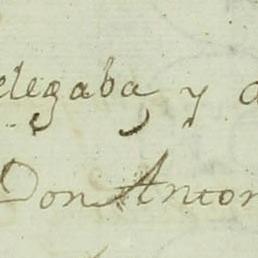 elegaba y
Don Anton